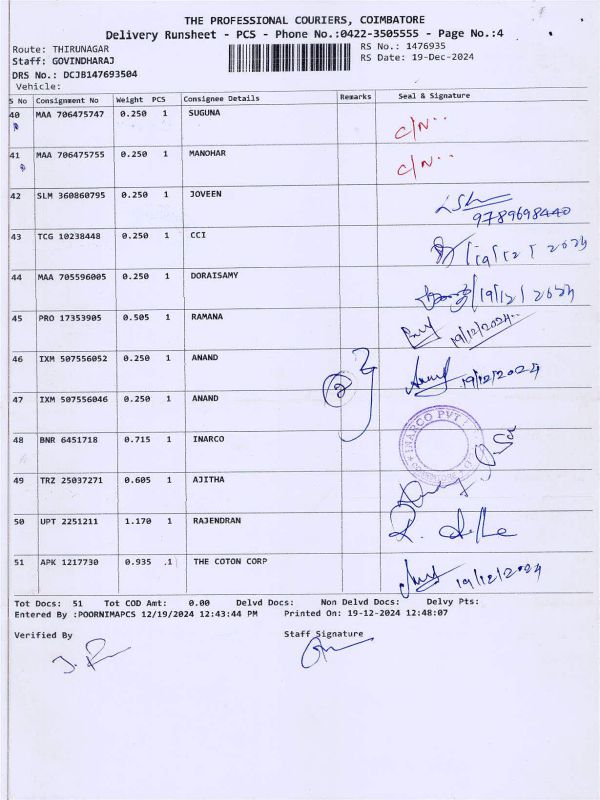 THE PROFESSIONAL COURIERS, COIMBATORE
Delivery Runsheet - PCS - Phone No.:0422-3505555 - Page No.:4
Route: THIRUNAGAR RS No.: 1476935
Staff: GOVINDHARAJ RS Date: 19-Dec-2024
DRS No.: DCJB147693504
Vehicle:
S No Consignment No Weight PCS Consignee Details Remarks Seal & Signature
40 MAA 706475747 0.250 1 SUGUNA C/N..
41 MAA 706475755 0.250 1 MANOHAR C/N..
42 SLM 360860795 0.250 1 JOVEEN
9789698440
43 TCG 10238448 0.250 1 CCI 19/12/2024
44 MAA 705596005 0.250 1 DORAISAMY 19/12/2024
45 PRO 17353905 0.505 1 RAMANA 19/12/2024
46 IXM 507556052 0.250 1 ANAND 19/12/2024
2
47 IXM 507556046 0.250 1 ANAND
48 BNR 6451718 0.715 1 INARCO INARCO PVT
49 TRZ 25037271 0.605 1 AJITHA
50 UPT 2251211 1.170 1 RAJENDRAN
51 APK 1217730 0.935 .1 THE COTON CORP 19/12/2024
Tot Docs: 51 Tot COD Amt: 0.00 Delvd Docs: Non Delvd Docs: Delvy Pts:
Entered By :POORNIMAPCS 12/19/2024 12:43:44 PM Printed On: 19-12-2024 12:48:07
Verified By Staff Signature